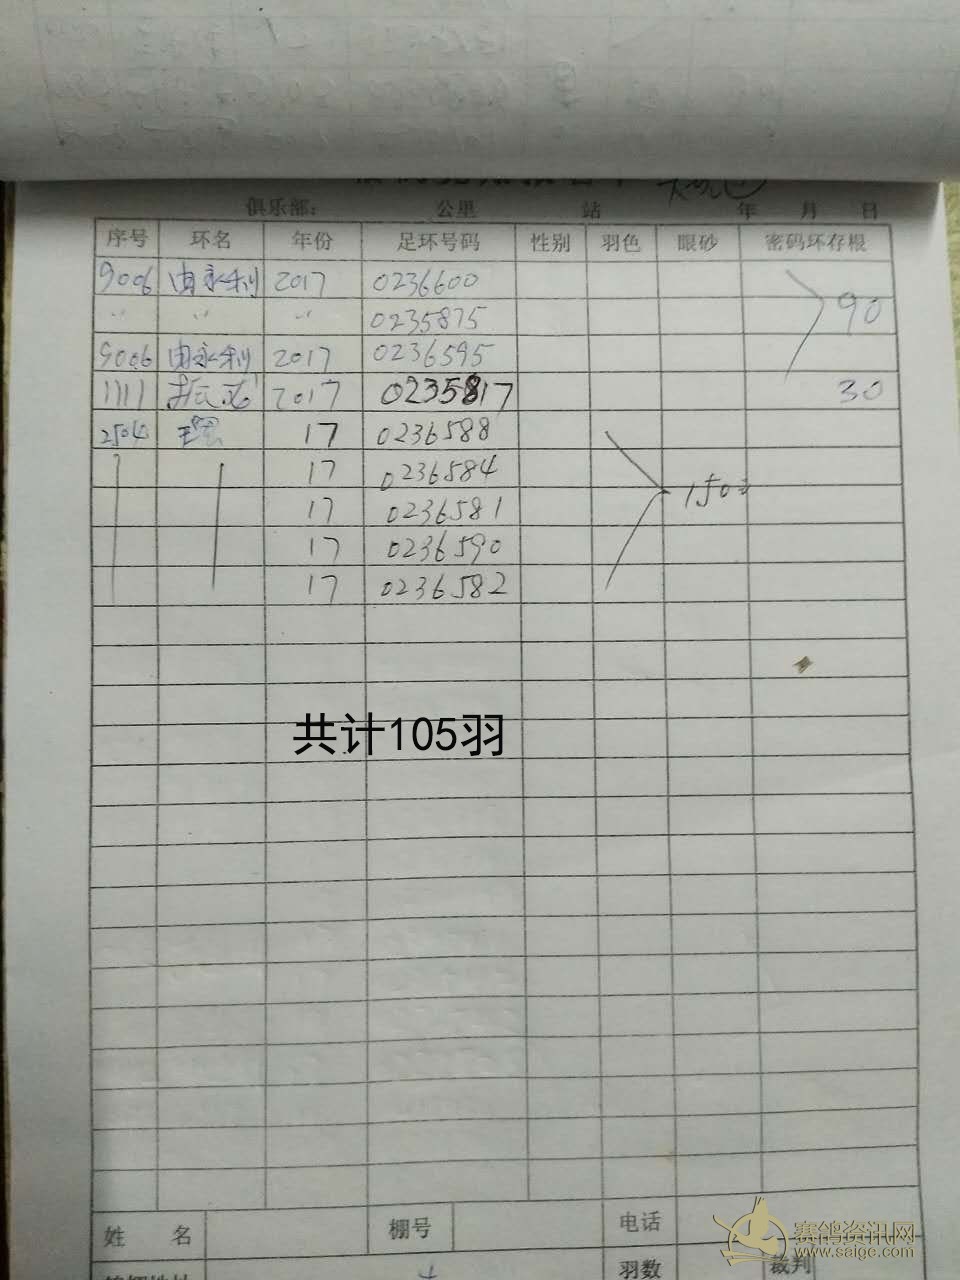 俱乐部： 公里 站 年 月 日
序号 环名 年份 足环号码 性别 羽色 眼砂 密码环存根
9006 由永利 2017 0236600
〃 〃 〃 0235875 90
9006 由永利 2017 0236595
1111 2017 0235817 30
2504 17 0236588
17 0236584
17 0236581 150
17 0236590
17 0236582
共计105羽
姓 名 棚号 电话
羽数 裁判
赛鸽资讯网
www.saigc.com